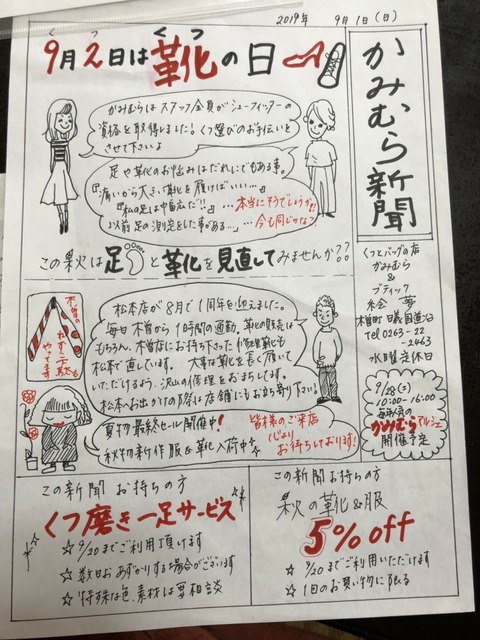 2019年 9月1日(日)
かみむら新聞
く つ くつ
9月2日は靴の日
かみむらは スタッフ全員がシューフィッターの
資格を取得しました!くつ選びのお手伝いを
させて下さいよ
足や靴のお悩みはだれにでもある事。
『痛いから大きい靴を履けばいい…』
『私の足は甲高だ!!』…本当にそうでしょうか?
『以前足の測定をした事がある…』…今も同じかな?
この秋は足と靴を見直してみませんか??
木曽の
ねずこ下駄も
やってます
松本店が8月で1周年を迎えました。
毎日木曽から1時間の通勤、靴の販売は
もちろん、木曽店にお持ち下さった修理靴も
松本で直しています。大事な靴を長く履いて
いただけるよう、沢山の修理をおまちしてます。
松本へお出かけの際は店舗にもお立ち寄り下さい!
夏物最終セール開催中!
秋物新作服&靴入荷中☆
皆様のご来店
心より
お待ちしております!
くつとバッグの店
かみむら
&
ブティック
絵夢
木曽町日義国道沿
Tel 0263-22
-2463
水曜定休日
9/28(土)
10:00-16:00
毎年人気の
かみむらマルシェ
開催予定
この新聞お持ちの方
くつ磨き一足サービス
☆ 9/20までご利用頂けます
☆ 数日お あずかりする場合がございます
☆ 特殊な色、素材は要相談
この新聞お持ちの方
秋の靴&服
5%off
☆ 9/20までご利用いただけます
☆ 1回のお買い物に限る